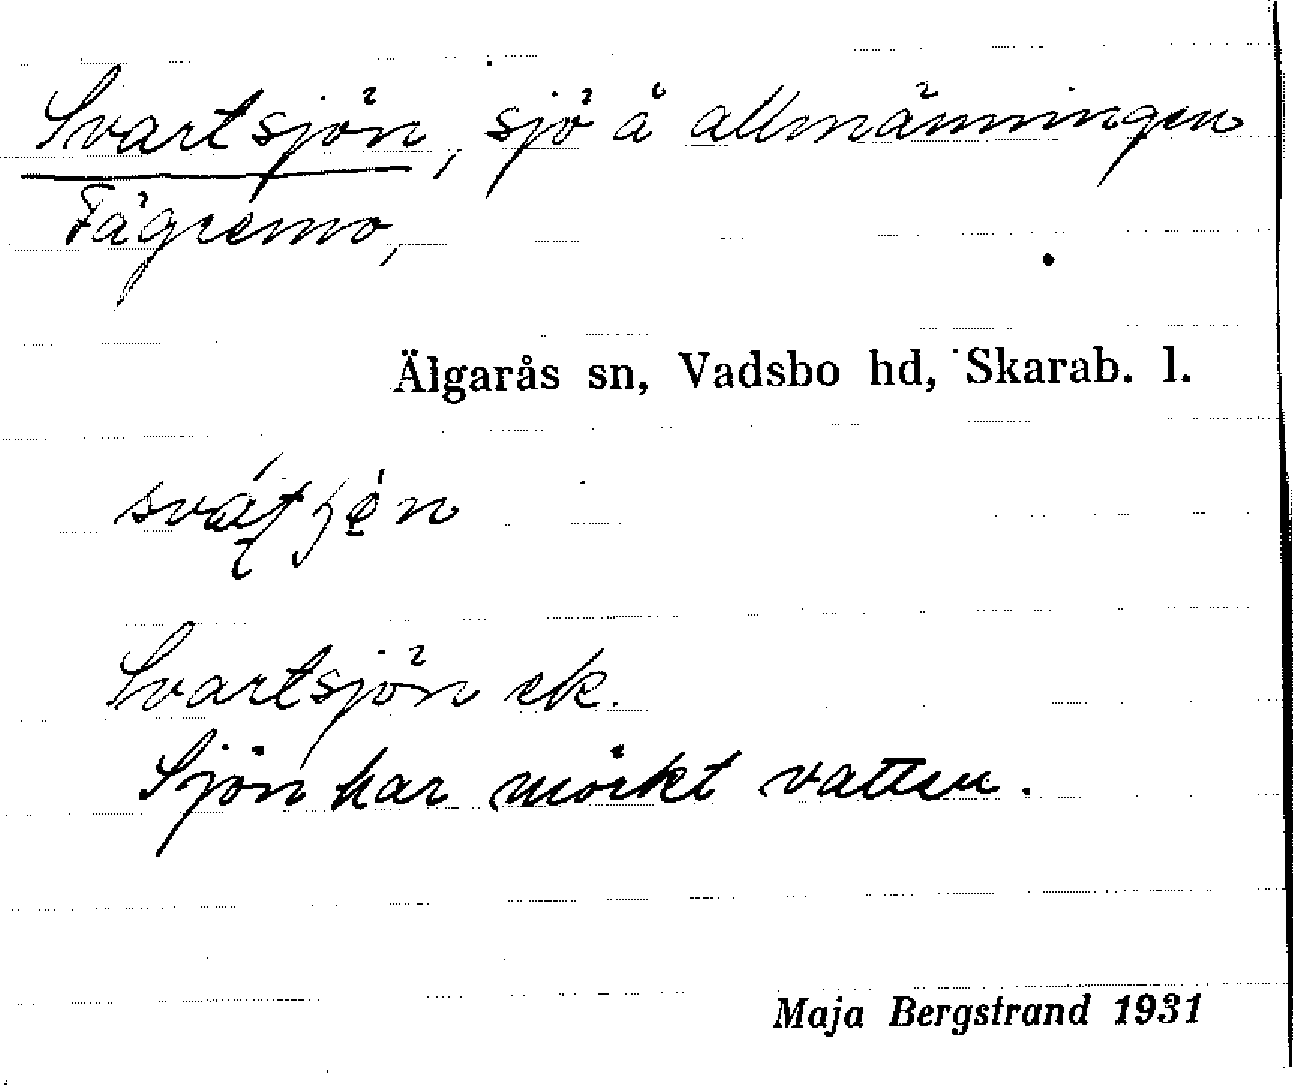 Svartsjön, sjö å allmänningen
Fägremo,
Älgarås sn, Vadsbo hd, Skarab. l.
Svartsjön ek.
Sjön har mörkt vatten.
Maja Bergstrand 1931